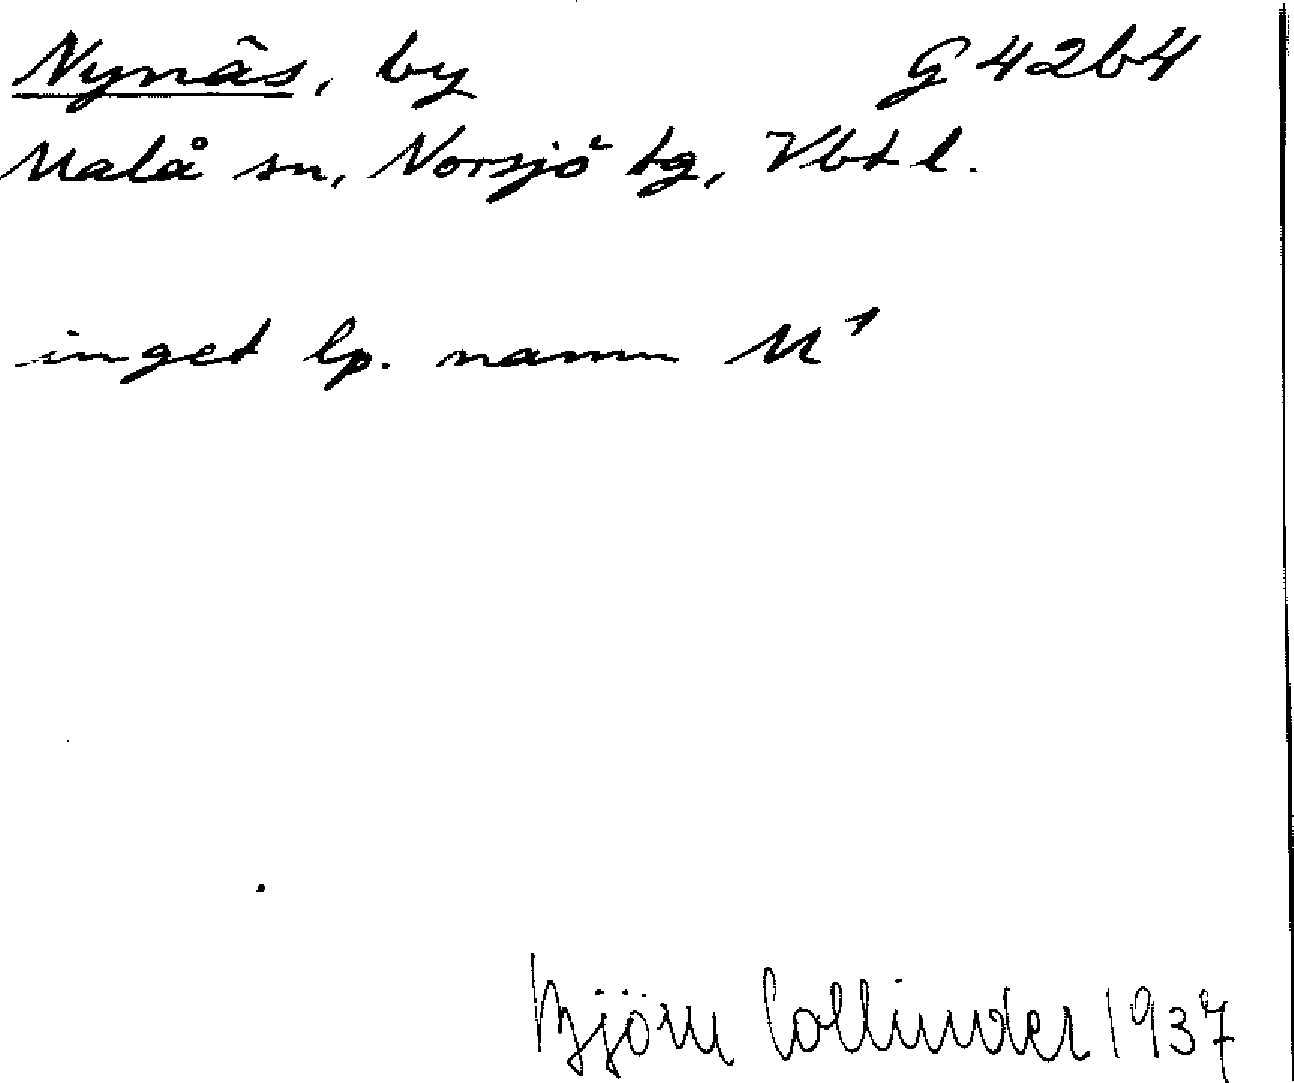 Nynäs, by G 42b4
Malå sn, Norsjö tg, Vbtl.
inget lp. namn M¹
Björn Collinder 1937